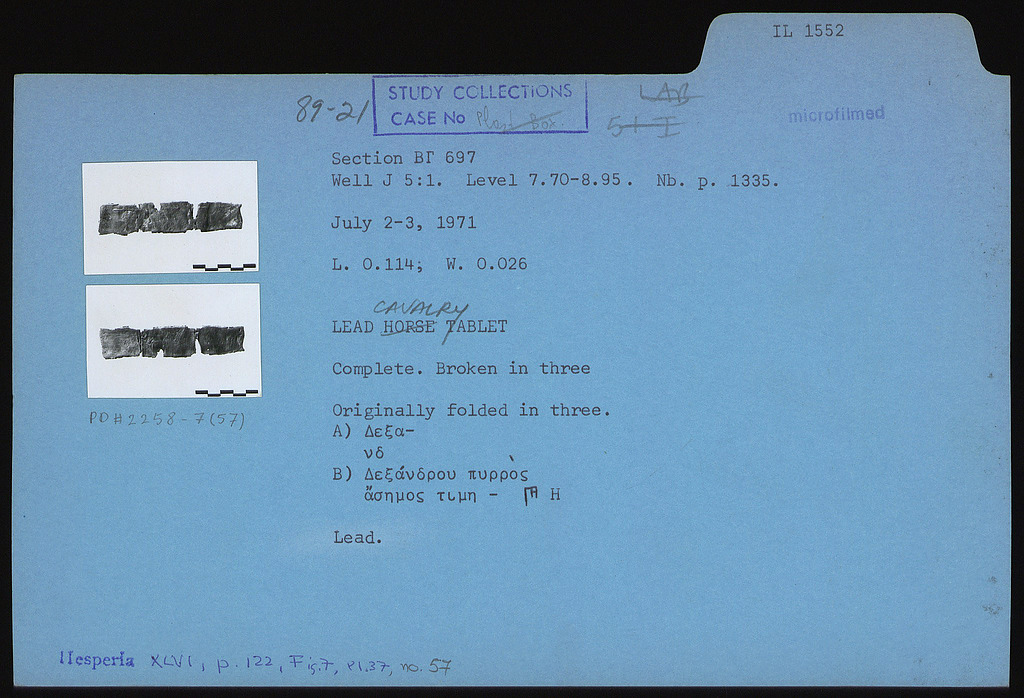 IL 1552
89-21
STUDY COLLECTIONS
CASE No Plast Box
LAB
51 I
microfilmed
Section ΒΓ 697
Well J 5:1. Level 7.70-8.95. Nb. p. 1335.
July 2-3, 1971
L. 0.114; W. 0.026
CAVALRY
LEAD HORSE TABLET
Complete. Broken in three
Originally folded in three.
A) Δεξα-
νδ
B) Δεξάνδρου πυρρὸς
ἄσημος τιμη - 𐅅 Η
Lead.
PD# 2258-7(57)
Hesperia XLVI, p. 122, Fig. 7, Pl. 37, no. 57